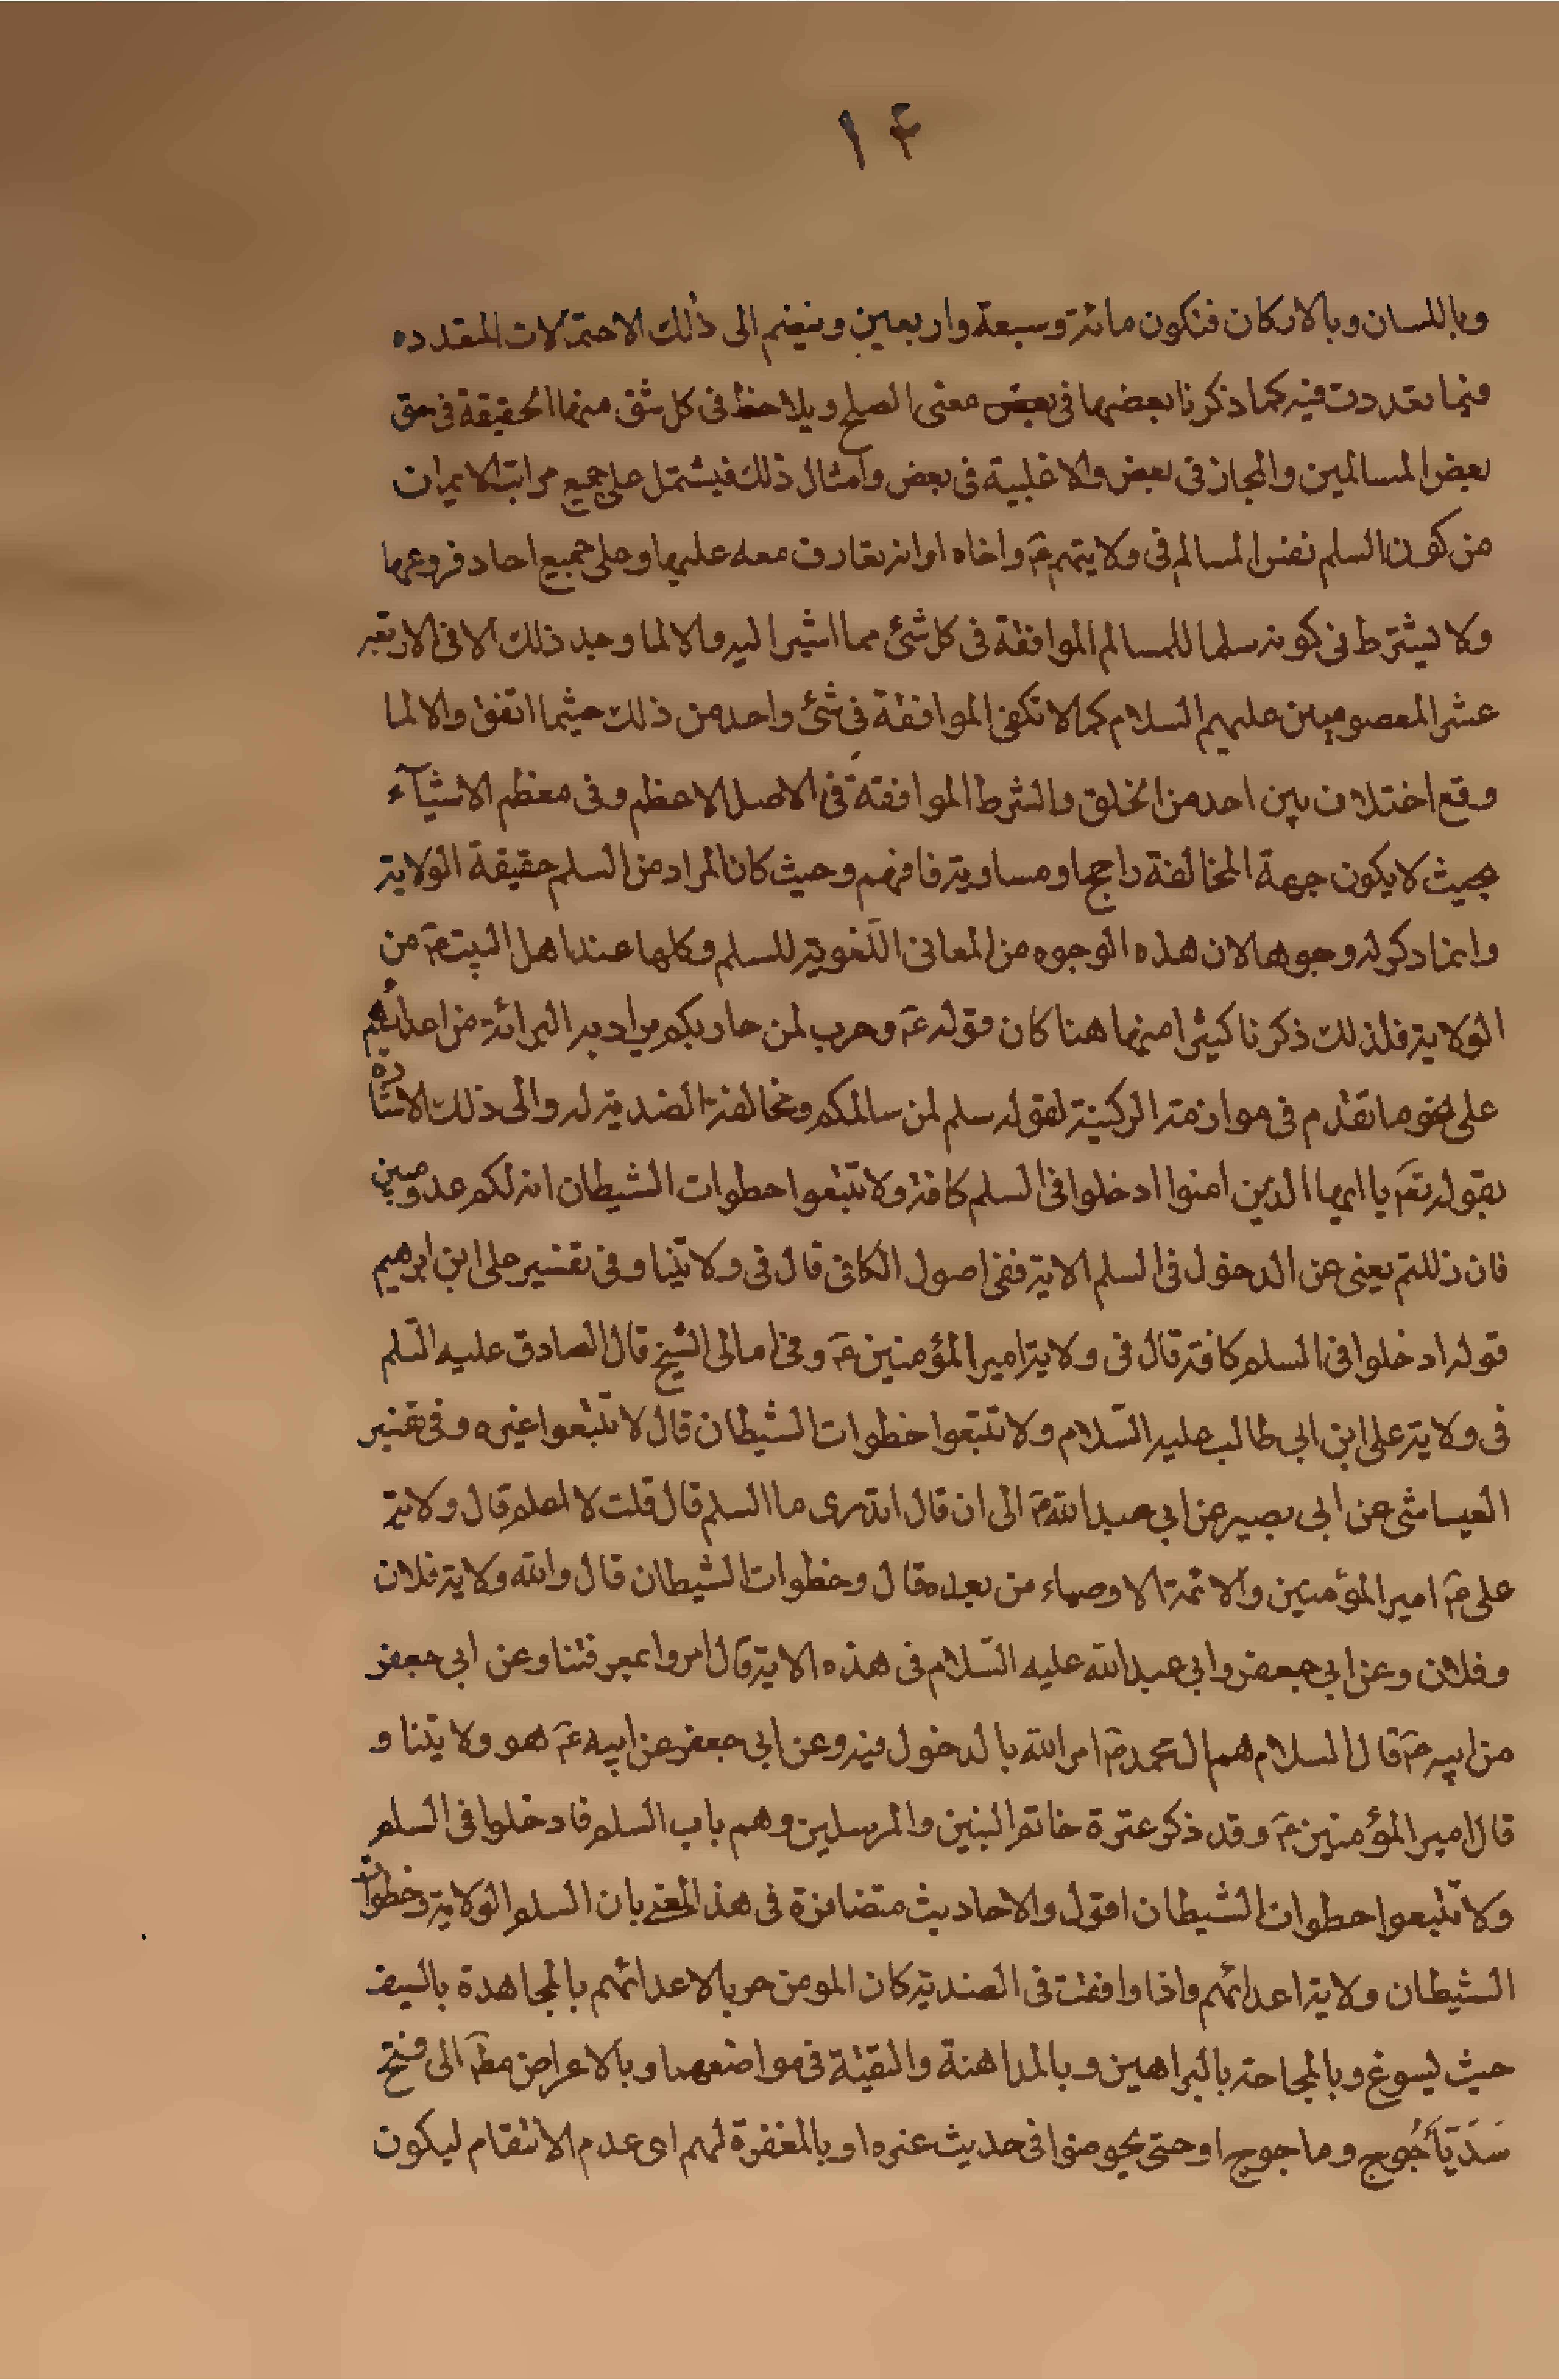 ١٤
وباللسان وبالاركان فتكون مائة وسبعة واربعين وينضم الى ذلك الاحتمالات المتعدده
فيما تعددت فيه كما ذكرنا بعضها فى بعض معنى الصلح ويلاحظ فى كل شق منها الحقيقة فى حق
بعض المسالمين والمجاز فى بعض والاغلبية فى بعض وامثال ذلك فيشتمل على جميع مراتب الايمان
من كون السلم نفس المسالم فى ولايتهم عۤ واخاه او انه تعارف معه عليها وعلى جميع احاد فروعها
ولا يشترط فى كونه سلما للمسالم الموافقة فى كل شئ مما اشير اليه والا لما وجد ذلك الا فى الاربعة
عشر المعصومين عليهم السلام كما لا تكفى الموافقة فى شئ واحد من ذلك حيثما اتفق والا لما
وقع اختلاف بين احد من الخلق والشرط الموافقة فى الاصل الاعظم وفى معظم الاشيآء
بحيث لا يكون جهة المخالفة راجحا ومساوية فافهم وحيث كان المراد من السلم حقيقة الولاية
وانما ذكر له وجوها لان هذه الوجوه من المعانى اللغوية للسلم وكلها عند اهل البيت عۤ من
الولاية فلذلك ذكرنا كثيرا منها هنا كان قوله عۤ وحرب لمن حاربكم يراد به البرائة من اعدائهم
على نحو ما تقدم فى موازمة الركينة لقوله سلم لمن سالمكم ومخالفة الضدية له والى ذلك الاشارة
بقوله تعۤ يا ايها الذين امنوا ادخلوا فى السلم كافة ولا تتبعوا خطوات الشيطان انه لكم عدو مبين
فان زللتم يعنى عن الدخول فى السلم الاية ففى اصول الكافى قال فى ولايتنا وفى تفسير على ابن ابرهيم
قوله ادخلوا فى السلم كافة قال فى ولاية امير المؤمنين عۤ وفى امالى الشيخ قال الصادق عليه السّلم
فى ولاية على ابن ابى طالب عليه السّلام ولا تتبعوا خطوات الشيطان قال لا تتبعوا غيره وفى تفسير
العياشى عن ابى بصير عن ابى عبد الله عۤ الى ان قال اتدرى ما السلم قال قلت لا اعلم قال ولاية
على عۤ امير المؤمنين والائمة الاوصياء من بعده قال وخطوات الشيطان قال والله ولاية فلان
وفلان وعن ابى جعفر وابى عبد الله عليه السّلام فى هذه الاية قال امروا بمعرفتنا وعن ابى جعفر
من ابيه عۤ قال السلام هم ال محمد عۤ امر الله بالدخول فيه وعن ابى جعفر عن ابيه عۤ هو ولايتنا و
قال امير المؤمنين عۤ وقد ذكر عترة خاتم النبين والمرسلين وهم باب السلم فادخلوا فى السلم
ولا تتبعوا خطوات الشيطان اقول والاحاديث متضافرة فى هذا المعنى بان السلم الولاية وخطوات
الشيطان ولاية اعدائهم واذا وافقت فى الضدية كان المومن حربا لاعدائهم بالمجاهدة بالسيف
حيث يسوغ وبالمحاجة بالبراهين وبالمداهنة والتقية فى مواضعهما وبالاعراض مطۤ الى فتح
سَدّ يَأجُوج وماجوج او حتى يخوضوا فى حديث غيره او بالمغفرة لهم اى عدم الانتقام ليكون